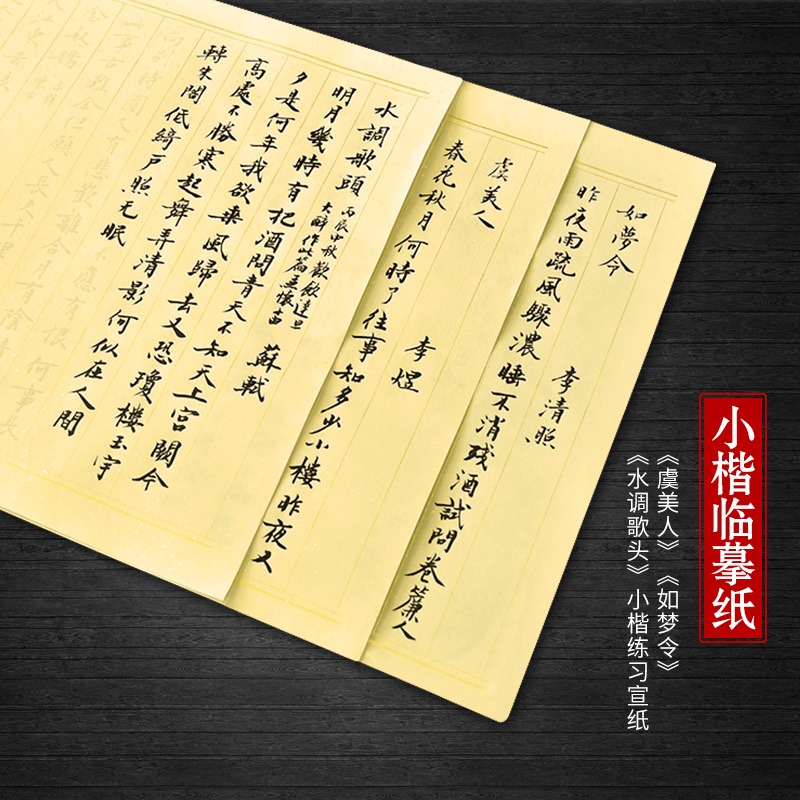 小楷临摹纸
《虞美人》《如梦令》
《水调歌头》小楷练习宣纸
如夢令
李清照
昨夜雨疏風驟濃睡不消残酒試問卷簾人
虞美人
李煜
春花秋月何時了往事知多少小樓昨夜又
水調歌頭
丙辰中秋歡飲達旦
大醉作此篇兼懷
蘇軾
明月幾時有把酒問青天不知天上宮闕今
夕是何年我欲乘風歸去又恐瓊樓玉宇
高處不勝寒起舞弄清影何似在人間
轉朱閣低綺戶照无眠
不應有恨何事長